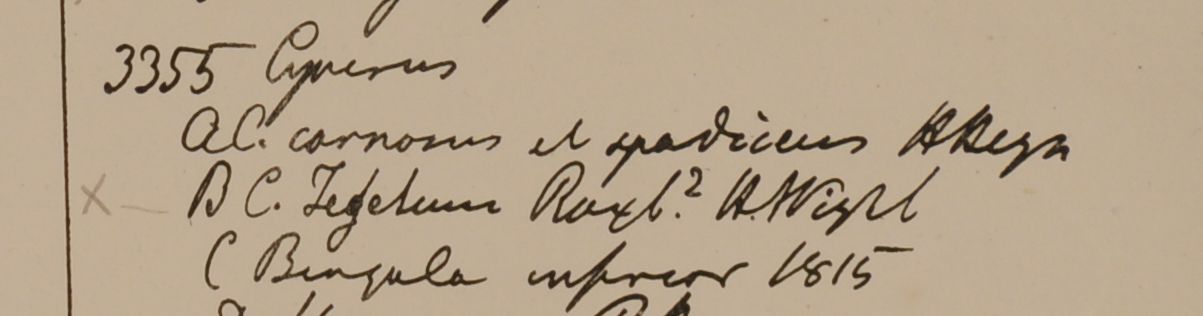 3355 Cyperus
A C. carnosus et spadiceus H Heyn
X B C. Tegetum Roxb.? H. Wight
C Bengala inferior 1815